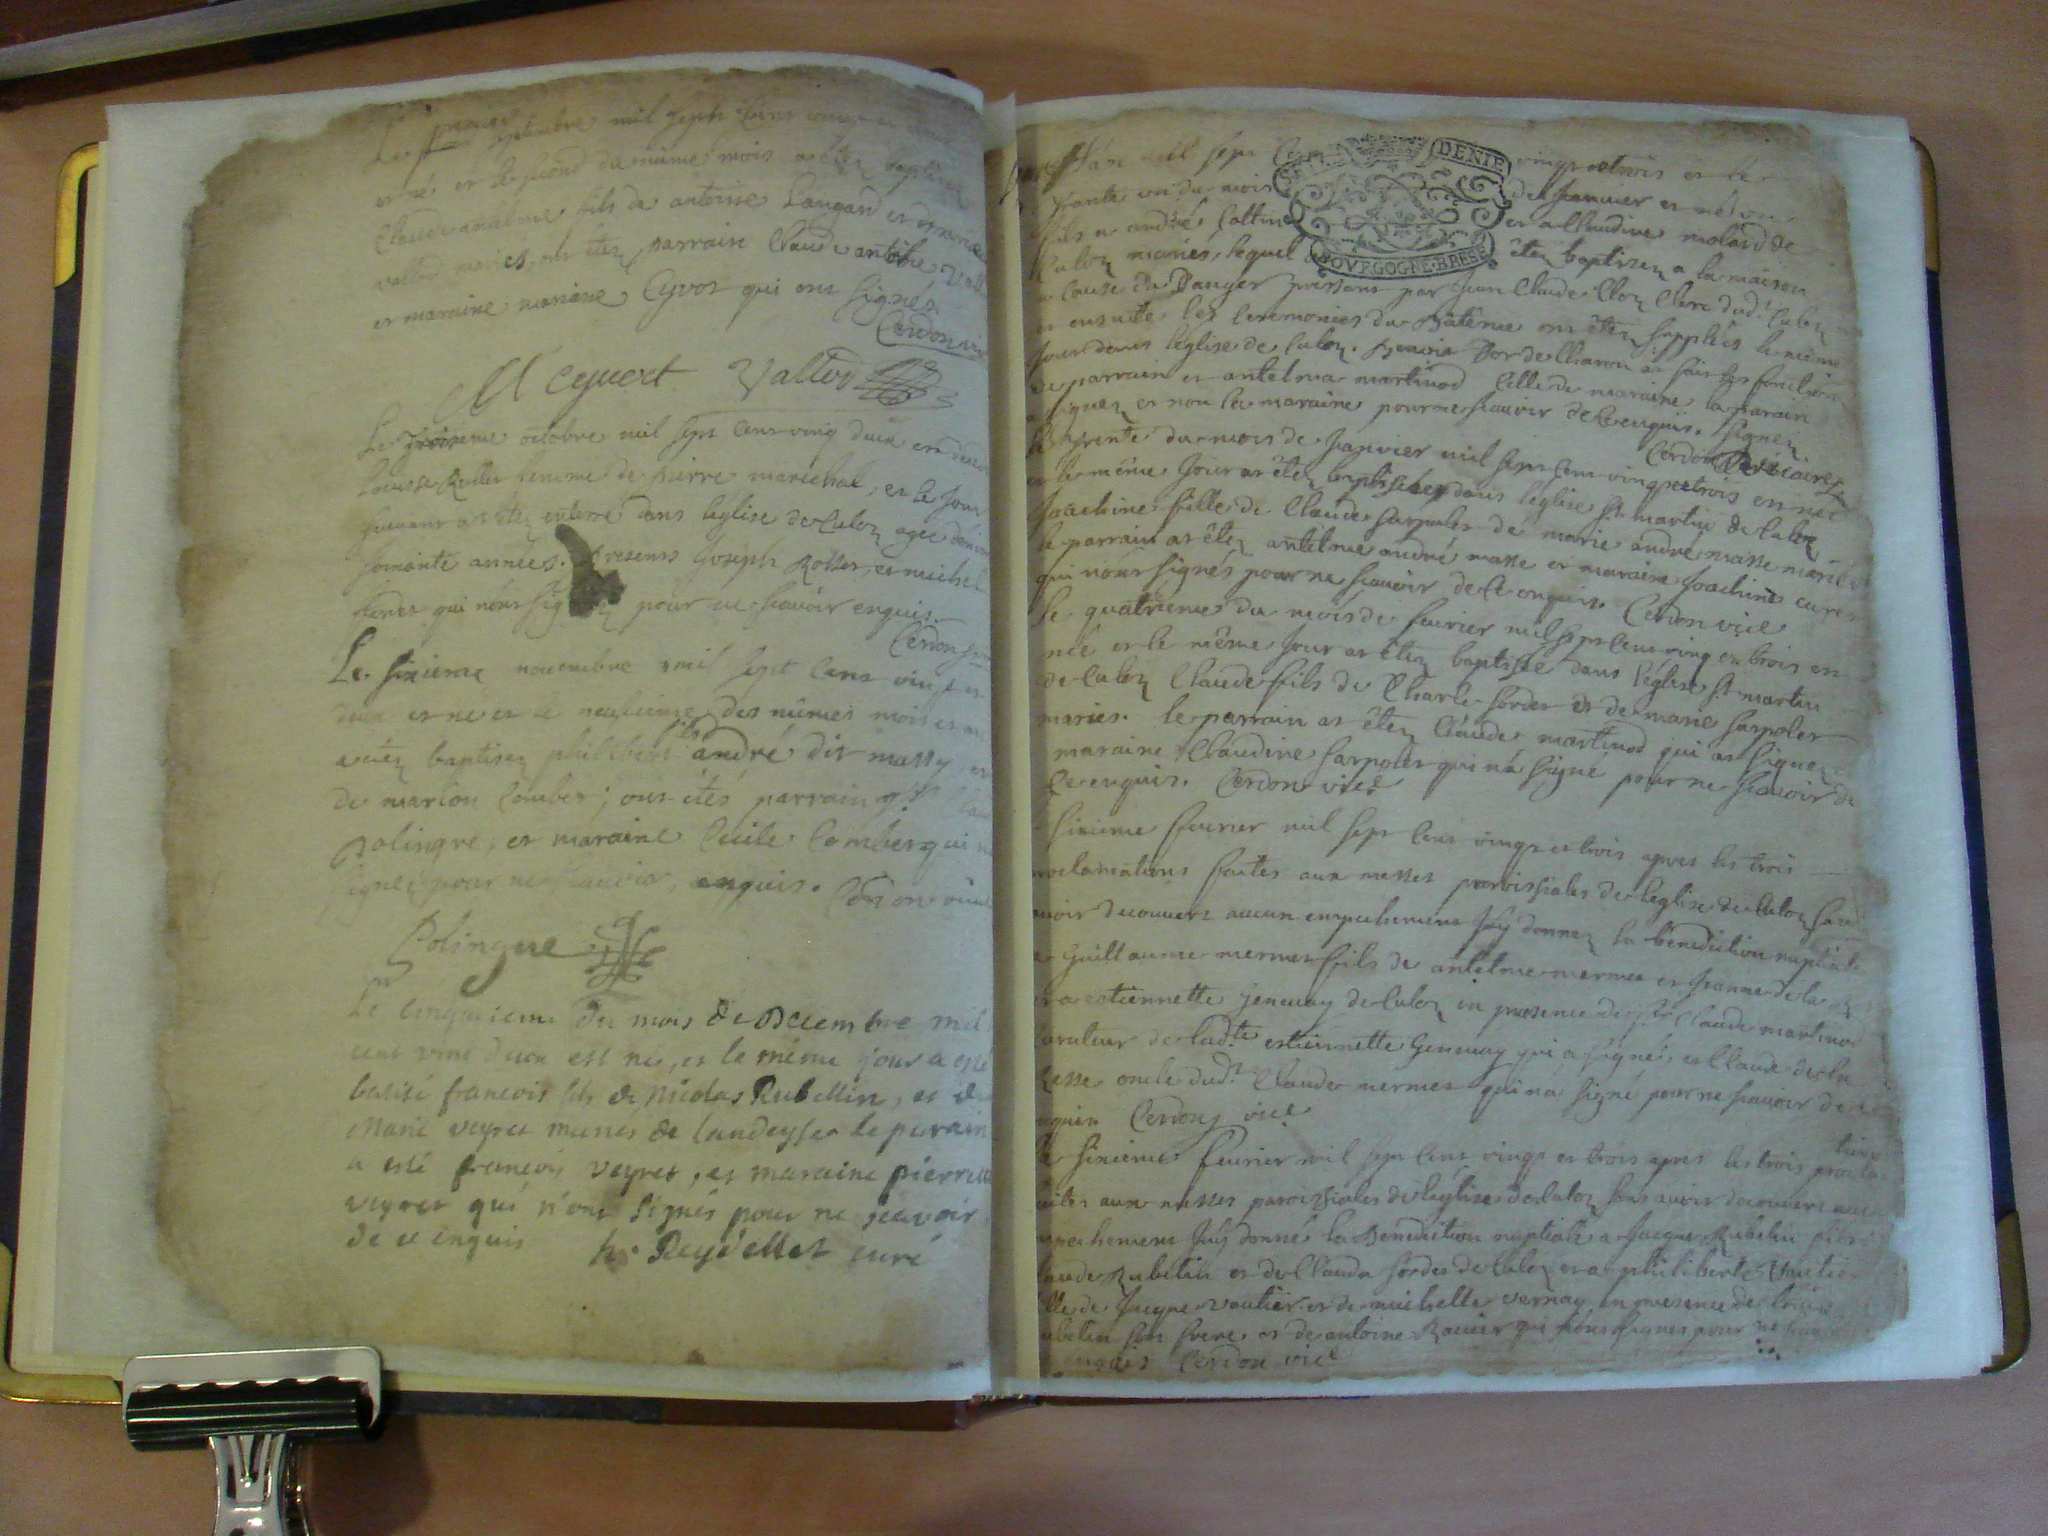 Le premier septembre mil sept cens vingt et
est né et le second du même mois a étez baptisez
Claude antelme fils de antoise Langard et de
vallod mariés, ont étez parrain Claude antoine Vall
et maraine mariane Cyvot qui ont signés
Cerdon vic
M Cyuert Vallod
Le troisieme octobre mil sept cens vingt deux est decedé
Louise Rollet femme de pierre marechal, et le jour
suivant at étez enterré dans léglise de Culoz agee denviron
soixante années. Presents Joseph Rosset, et michel
qui nónt sig pour ne scavoir enquis.
Cerdon
Le sixieme novembre mil sept cens vingt et
deux est né et le neufvieme des mêmes mois et an
a étéz baptisez philibert fils andré dit massy et
de marion Comber; ont étés parrain
polingre, et maraine Cecile Comber qui n
signez pour ne scavoir, enquis. Cerdon vicai
Polingue
Le cinquieme du mois de Decembre mil
cent vint deux est né, et le même jour a esté
batisé francois fils de Nicolas Rubellin, et de
Marie veyret mariés de landeysse le parain
a esté francois veyret, et maraine pierrette
veyret qui n'ont signés pour ne scavoir
de ce enquis h. Reydellet curé
Lan mil sept Cens vingt et trois et le
DENIE
BOVRGOGNE·BRESSE
trante un du mois de Janvier est né un
fils a andré Cattin et a Claudine molard de
Culoz mariés, lequel a étez baptisez a la maison
a cause du Danger pressant par Jean Claude Cloz Clerc dud.t Culoz
et ensuitte les ceremonies du Batême ont étez supplées le même
Jour dans léglise de Culoz. Benoit Bor de Charon at fait les fonctions
de parrain et antelma martinod celle de maraine la parain
a signez et non la maraine pour ne scavoir de ce enquis. signez
Cerdon vicaire
Le trente du mois de Janvier mil sept cens vingt et trois est née
et le même Jour at étez baptisée dans léglise st martin de Culoz
Joachine fille de Claude sarpoler de marie andré masse mariés
le parrain at étez antelme andré masse et maraine Joachine
qui nónt signés pour ne scavoir de ce enquis. Cerdon vice
Le quatrieme du mois de fevrier mil sept cens vingt et trois est
né et le même Jour at étez baptisée dans léglise st martin
de Culoz Claude fils de Charle sordet et de marie sarpoler
mariés. le parrain at étez Claude martinod qui at signez
maraine Claudine sarpoler qui na signé pour ne scavoir de
ce enquis. Cerdon vice
sixieme fevrier mil sept cens vingt et trois apres les trois
proclamations faites aux messes paroissiales de léglise de Culoz sans
avoir decouvert aucun empechement Jay donnez la bénédiction nuptiale
a Guillaume mermet fils de antelme mermet et Jeanne de la
et a estiennette Genevay de Culoz en presence de sr Claude martinod
curateur de lad.te estiennette Genevay qui a signé, et Claude de la
esse oncle dud.t Claude mermet qui na signé pour ne scavoir de ce
enquis Cerdon vice
le sixieme fevrier mil sept cens vingt et trois apres les trois proclamations
faites aux messes paroissiales de léglise de Culoz sans avoir decouvert aucun
empechement Jay donné la Benediction nuptiale a Jacque Rubelin fils
Claude Rubelin et de Clauda sordet de Culoz et a philiberte Vautier
fille de Jacque vautier et de michelle vernay en presence de
Rubelin son frere et de antoine Ravier qui nont signés pour ne scavoir
enquis Cerdon vice